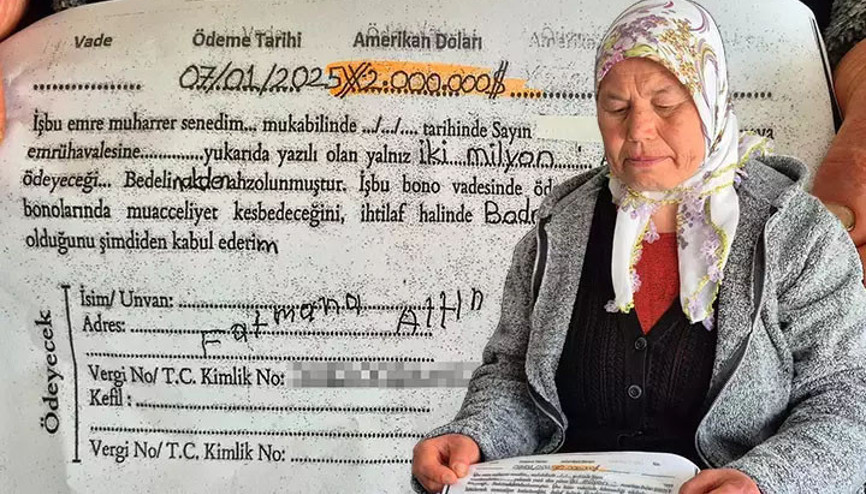 Vade Ödeme Tarihi Amerikan Doları
07/01/2025 2.000.000$
İşbu emre muharrer senedim... mukabilinde .../.../.... tarihinde Sayın
emrühavalesine.............yukarıda yazılı olan yalnız iki...milyon
ödeyeceği... Bedeli nakden ahzolunmuştur. İşbu bono vadesinde
bonolarında muacceliyet kesbedeceğini, ihtilaf halinde
olduğunu şimdiden kabul ederim
Ödeyecek
İsim/ Unvan:
Adres:
Fatmana
Vergi No/ T.C. Kimlik No:
Kefil :
Vergi No/ T.C. Kimlik No: